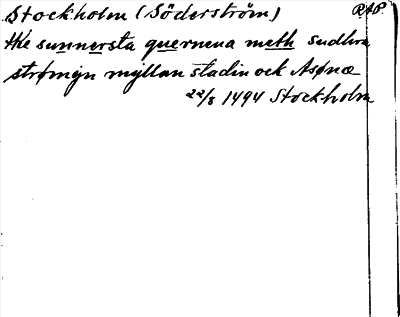 Stockholm (Söderström) RAP.
the sunnersta quernena meth sudhra
strømyn myllan stadin ock Asønæ
22/8 1494 Stockholm